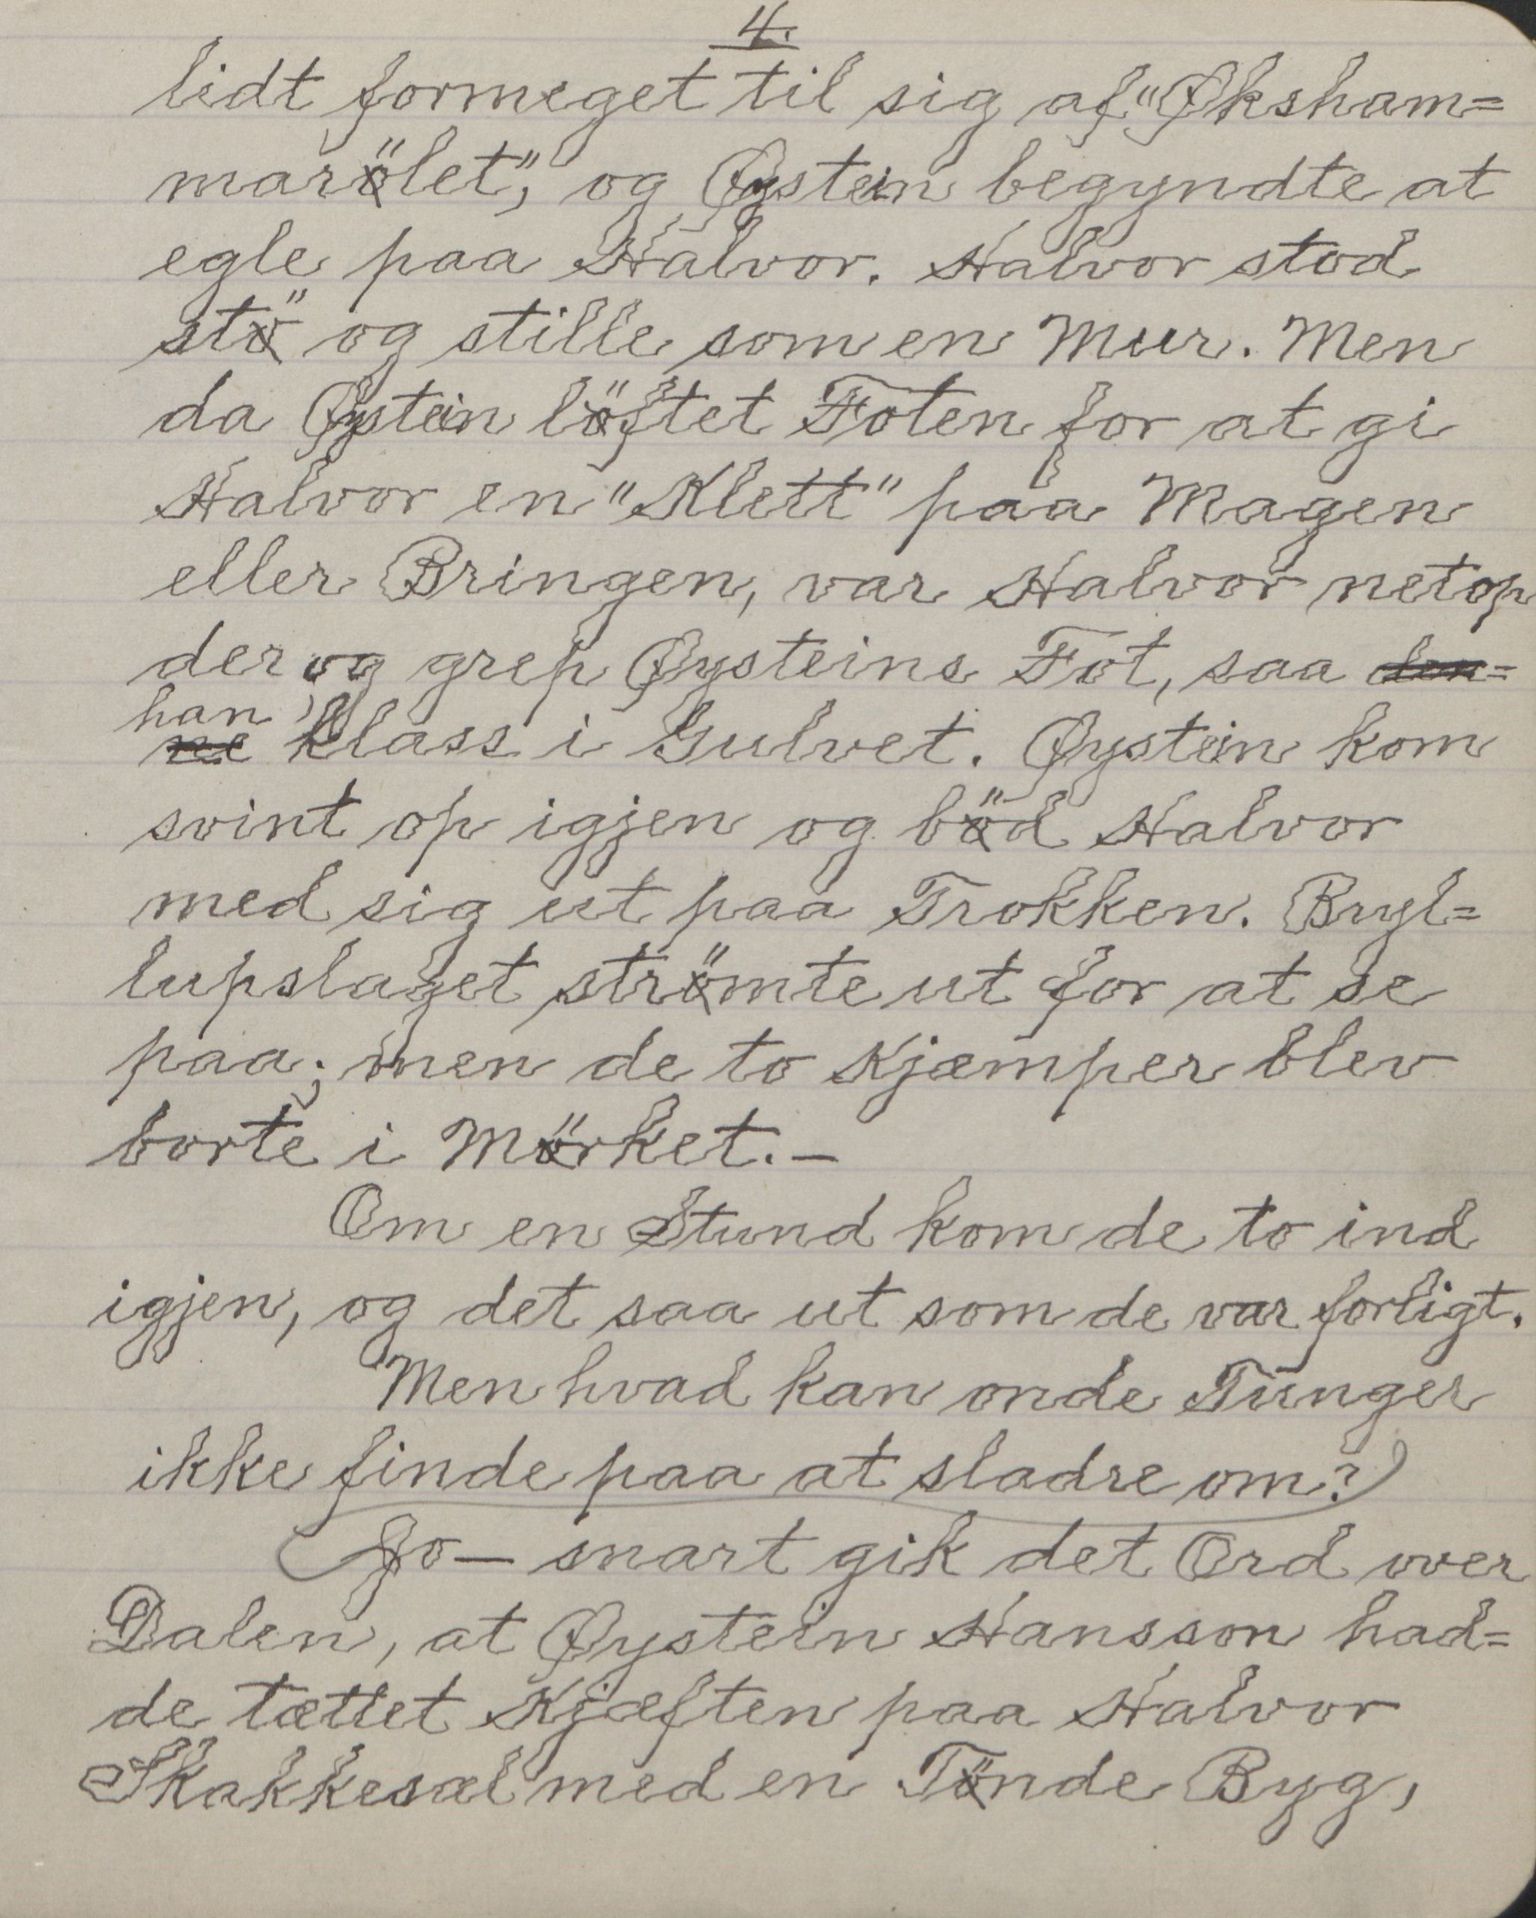 4.
lidt formeget til sig af "Øksham=
marölet", og Øystein begyndte at
egle paa Halvor. Halvor stod
stö og stille som en Mur. Men
da Øystein löftet Foten for at gi
Halvor en "Klett" paa Magen
eller Bringen, var Halvor netop
der og grep Øysteins Fot, saa den=
han
ne klass i Gulvet. Øystein kom
svint op igjen og böd Halvor
med sig ut paa Trokken. Bryl=
lupslaget strömte ut for at se
paa; men de to Kjæmper blev
borte i Mörket.—
Om en Stund kom de to ind
igjen, og det saa ut som de var forligt.
Men hvad kan onde Tunger
ikke finde paa at sladre om?
Jo — snart gik det Ord over
Dalen, at Øystein Hansson had=
de tættet Kjæften paa Halvor
Skakkesæl med en Tönde Byg,